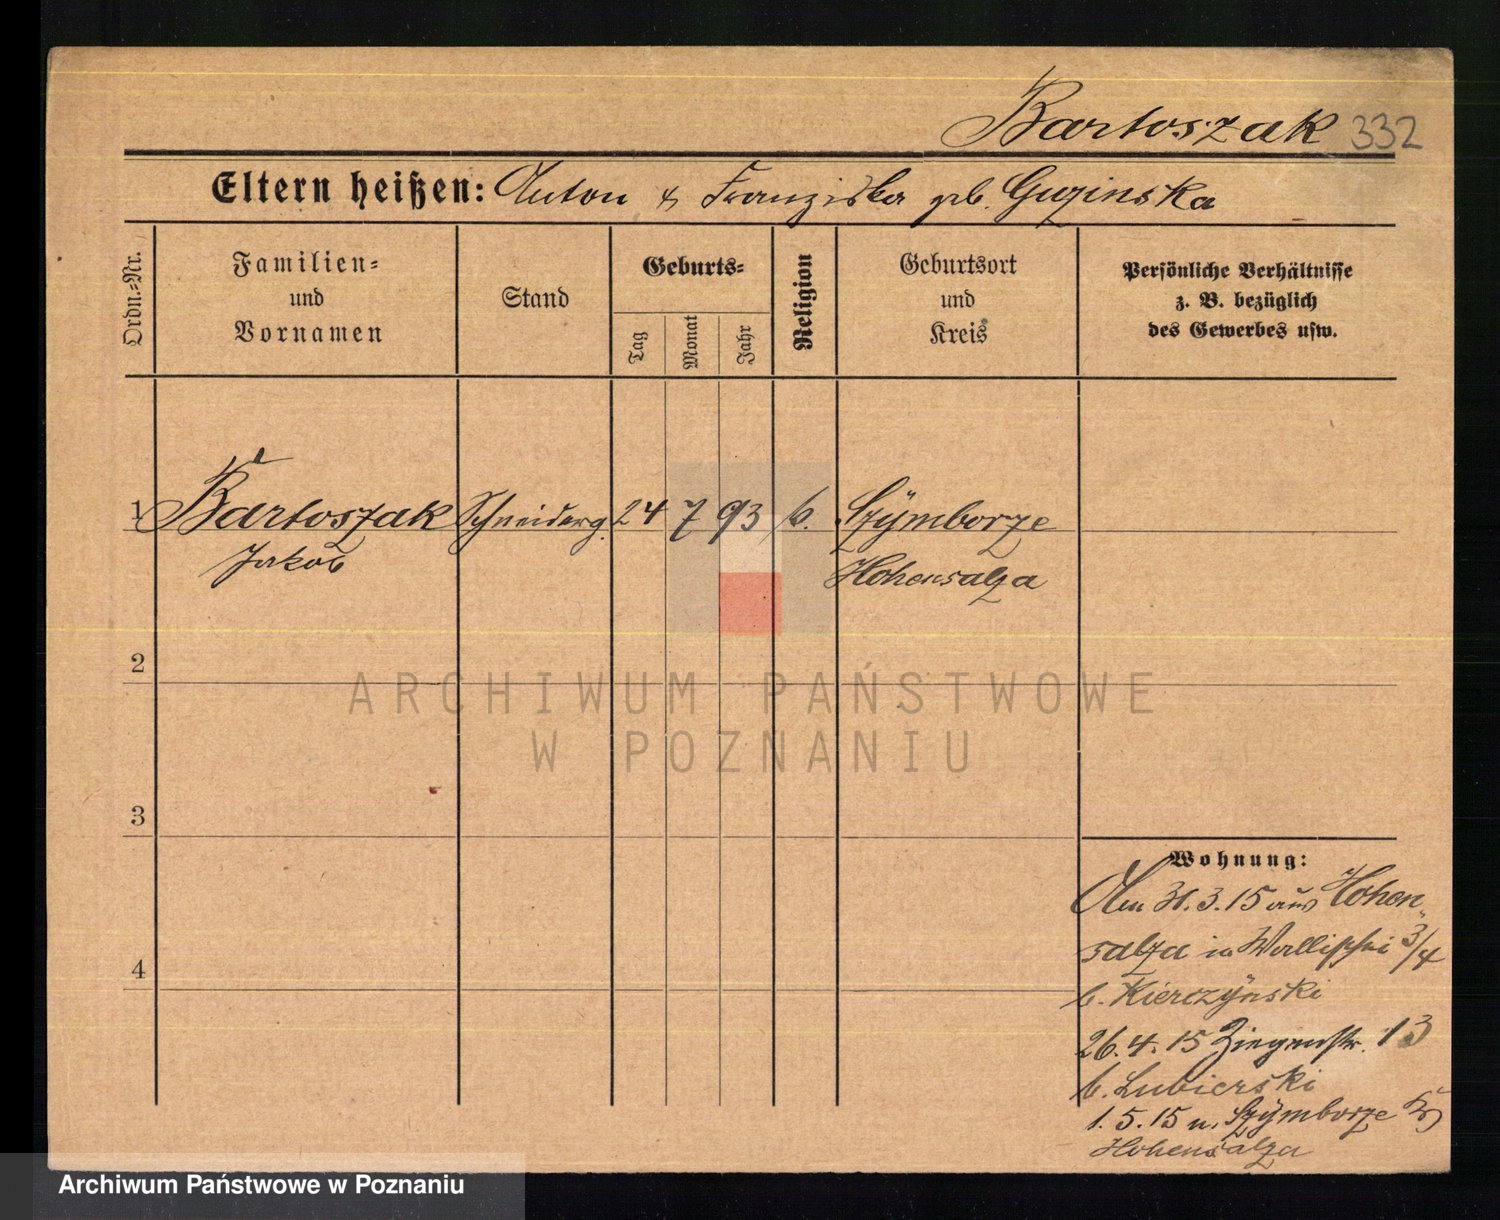 Bartoszak 332
Eltern heißen: Anton & Franziska geb. Guzinska
Ordn.=Nr.
Familien=
und
Vornamen
Stand
Geburts=
Tag
Monat
Jahr
Religion
Geburtsort
und
Kreis
Persönliche Verhältnisse
z. B. bezüglich
des Gewerbes usw.
1 Bartoszak Schneiderg. 24 7 93 k. Szymborze
Jakob Hohensalza
2
3
4
Wohnung:
Am 31.3.15 aus Hohen
salza in Wallischei 3/4
b. Kierczynski
26.4.15 Ziegenstr. 13
b. Lubierski
1.5.15 n. Szymborze Krs
Hohensalza
ARCHIWUM PAŃSTWOWE
W POZNANIU
Archiwum Państwowe w Poznaniu